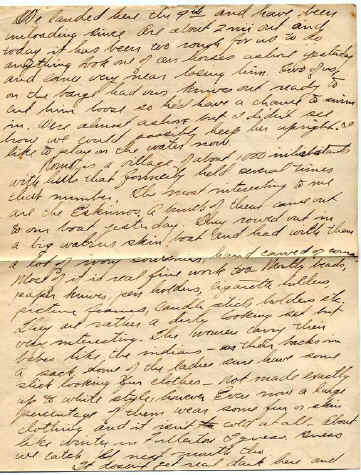 We landed here the 9th and have been
unloading since are about 2 mi out and
today it has been too rough for us to do
anything took one of our horses ashore yesterday
and came very near losing him. Two of us
on the barge had our knives out ready to
cut him loose so he'd have a chance to swim
in. Were almost ashore but I didn't see
how we could possibly keep her upright. I'd
like to play on the water more
is a village of about 1000 inhabitants
with hills that formerly held several times
that number. The most interesting to me
are the Eskimos, a bunch of them came out
to our boat yesterday. They rowed out in
a big walrus skin boat and had with them
a lot of ivory souvenirs, hand carved of course
Most of it is real fine work too Mostly beads,
paper knives, pen holders, cigarette holders,
picture frames, candle stick holders etc.
They are rather a dirty looking set but
very interesting. The women carry their
like the indians - on their backs in
a sack. Some of the ladies sure have some
slick looking fur clothes - Not made exactly
up to white style, however Even now a large
percentage of them wear some fur or skin
clothing and it isn't cold at all. About
like winter in I guess. Guess
we catch it next month tho
It doesn't get real dark here and